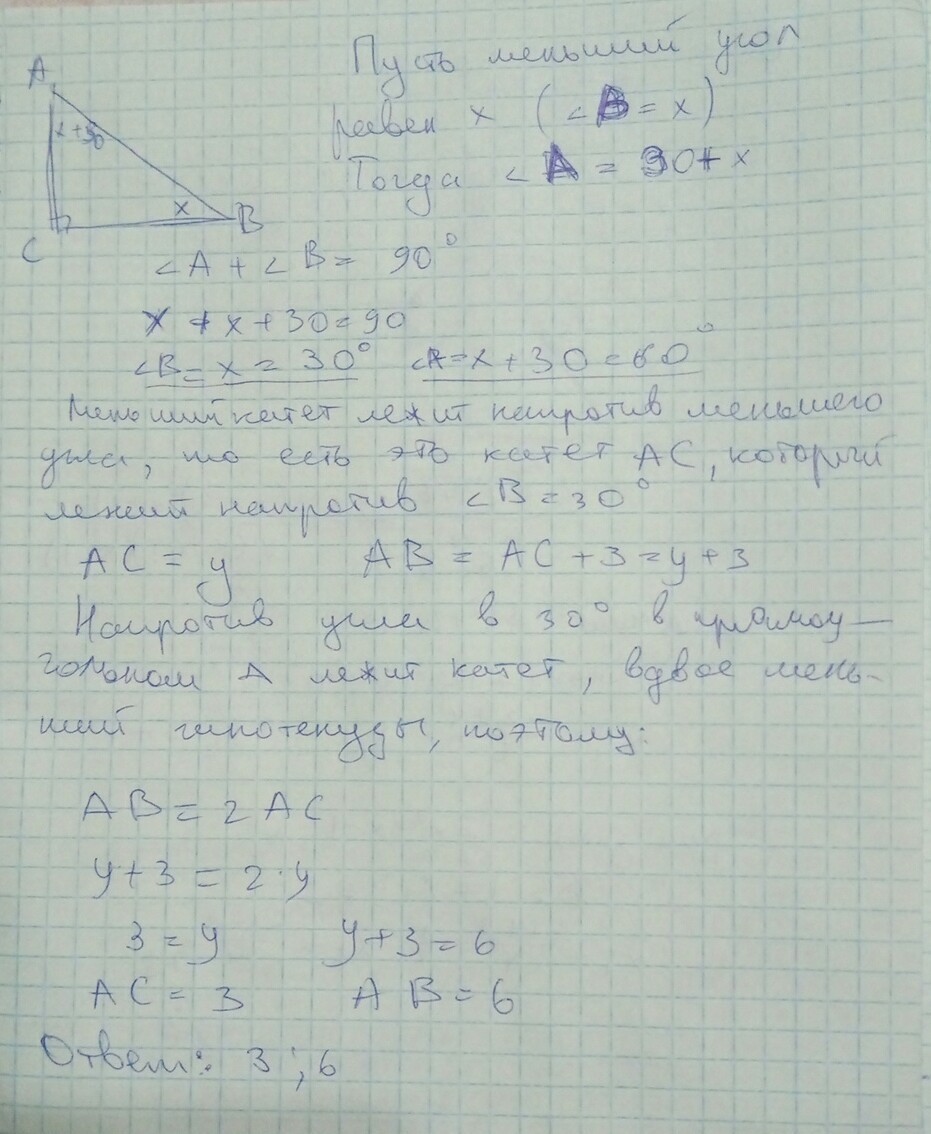 Пусть меньший угол
равен x (∠B = x)
Тогда ∠A = 30+x
A
x+30
x
B
C
∠A + ∠B = 90°
x + x + 30 = 90
∠B = x = 30° ∠A = x + 30 = 60°
Меньший катет лежит напротив меньшего
угла, то есть это катет AC, который
лежит напротив ∠B = 30°
AC = y AB = AC + 3 = y + 3
Напротив угла в 30° в прямоу-
гольном Δ лежит катет, вдвое мень-
ший гипотенузы, поэтому:
AB = 2AC
y + 3 = 2·y
3 = y y + 3 = 6
AC = 3 AB = 6
Ответ: 3; 6